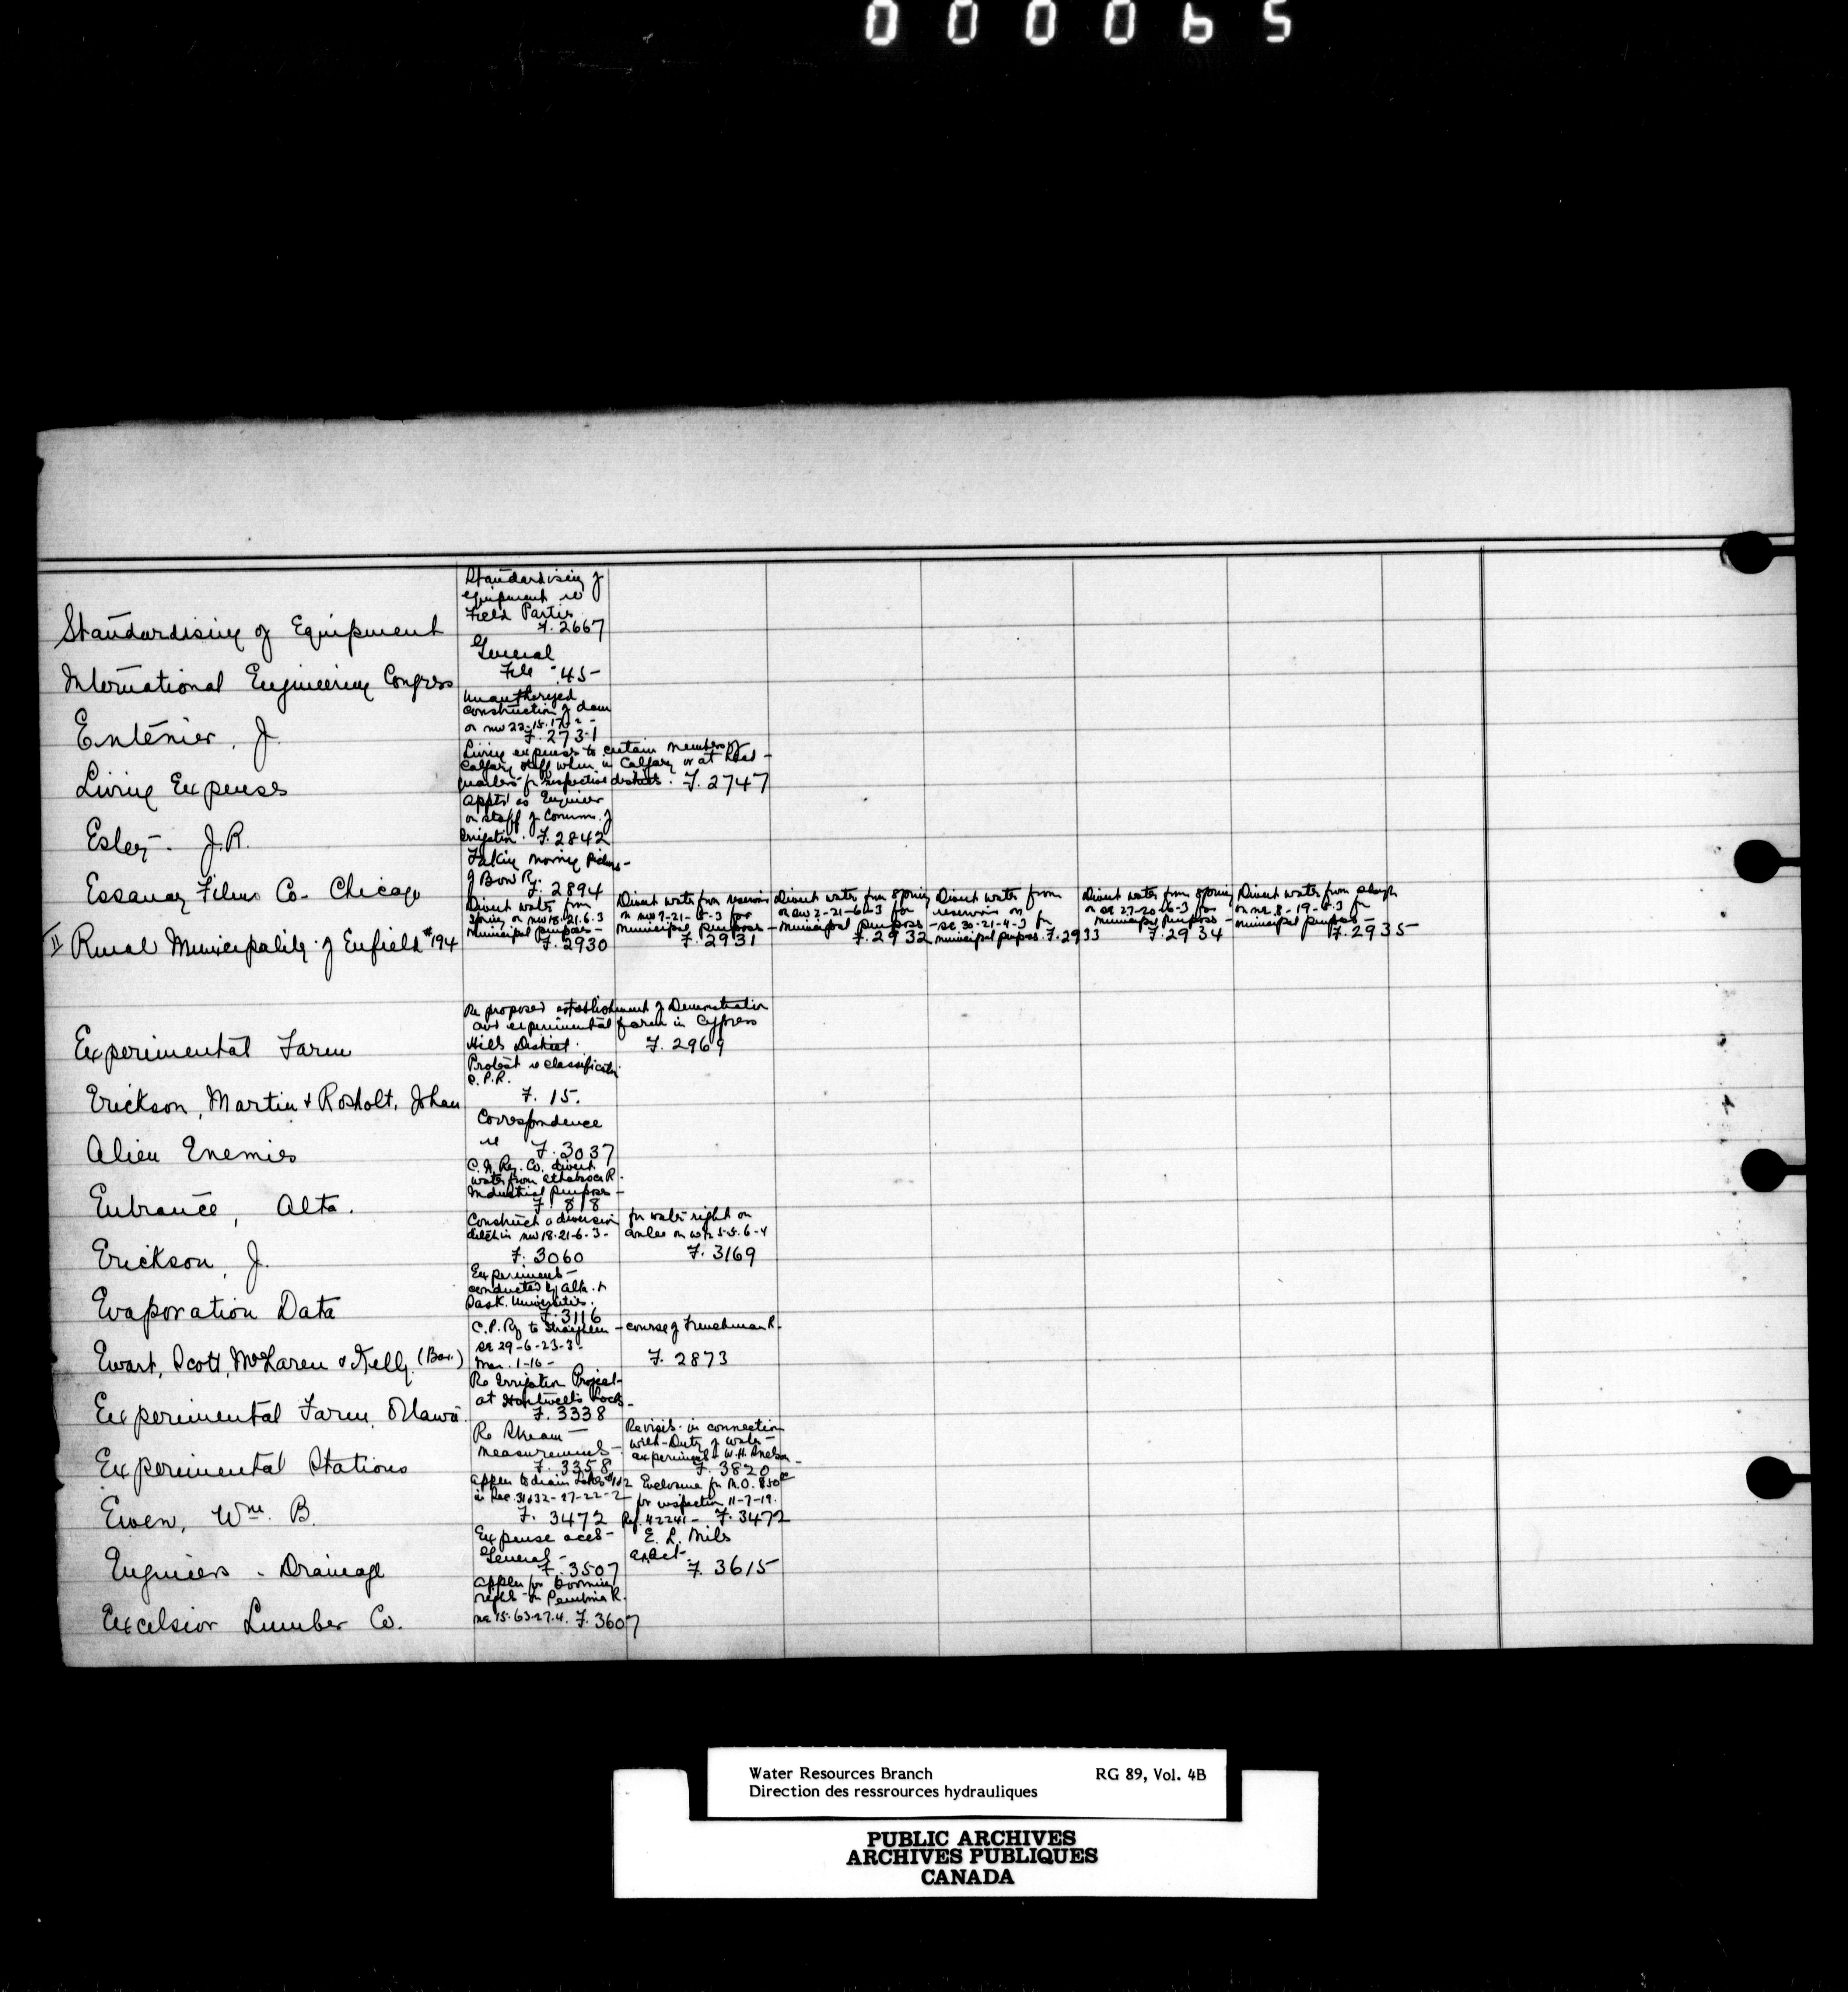 000065
Standardising of
equipment re
Field Parties
Standardising of Equipment F. 2667
General
International Engineering Congress File 45-
Unauthorized
construction of dam
on nw 22-15-17-2-
Entenier, J. F. 2731
Living expenses to certain members of
Calgary staff when in Calgary or at head-
Living Expenses quarters for inspection districts. F. 2747
Appt'd as Engineer
on staff of Comm. of
Esley- J.R. Irrigation. F. 2842
Taking moving pictures-
of Bow R.
Essanay Films Co. Chicago F. 2894
Divert water from Divert water from reservoir Divert water from spring Divert water from Divert water from spring Divert water from slough
spring on nw 18-21-6-3 on nw 7-21-5-3 for on sw 2-21-6-3 for reservoir on on se 27-20-6-3 for on ne 8-19-5-3 for
municipal purposes- municipal purposes- municipal purposes- se 30-21-4-3 for municipal purposes- municipal purposes-
Rural Municipality of Enfield #194 F. 2930 F. 2931 F. 2932 municipal purposes. F. 2933 F. 2934 F. 2935-
Re proposed establishment of Demonstration
and experimental farm in Cypress
Experimental Farm Hills District. F. 2969
Protest re classification
C.P.R.
Erickson, Martin & Rosholt, Johan F. 15.
Correspondence
re
Alien Enemies F. 3037
C.N. Ry. Co. divert
water from Athabasca R.
Industrial purposes-
Entrance, Alta. F. 818
Construct a diversion for water right on
ditch in nw 18-21-6-3-
Erickson, J. F. 3060 F. 3169
Experiments-
conducted by Alta. &
Sask. Universities.
Evaporation Data F. 3116
C.P. Ry to straighten - course of Frenchman R.
se 29-6-23-3-
Ewart, Scott, McLaren & Kelly. (Bar.) Mar. 1-16- F. 2873
Re Irrigation Project-
at Hartwells Locks-
Experimental Farm, Ottawa. F. 3338
Re Stream- Re visit in connection
measurements- with Duty of water-
experiments W.H. Snelson-
Experimental Stations F. 3358 F. 3820
Appln to drain Lakes Enclosure for M.O. $50
for inspection 11-7-19.
Ewen, Wm. B. F. 3472 Ref. 42241- F. 3472
Expense accts- E. L. Mils
General- acct-
Engineers - Drainage F. 3507 F. 3615
Appln for booming
rights on Pembina R.
Excelsior Lumber Co. ne 15-63-27-4. F. 3607
Water Resources Branch RG 89, Vol. 4B
Direction des ressrources hydrauliques
PUBLIC ARCHIVES
ARCHIVES PUBLIQUES
CANADA